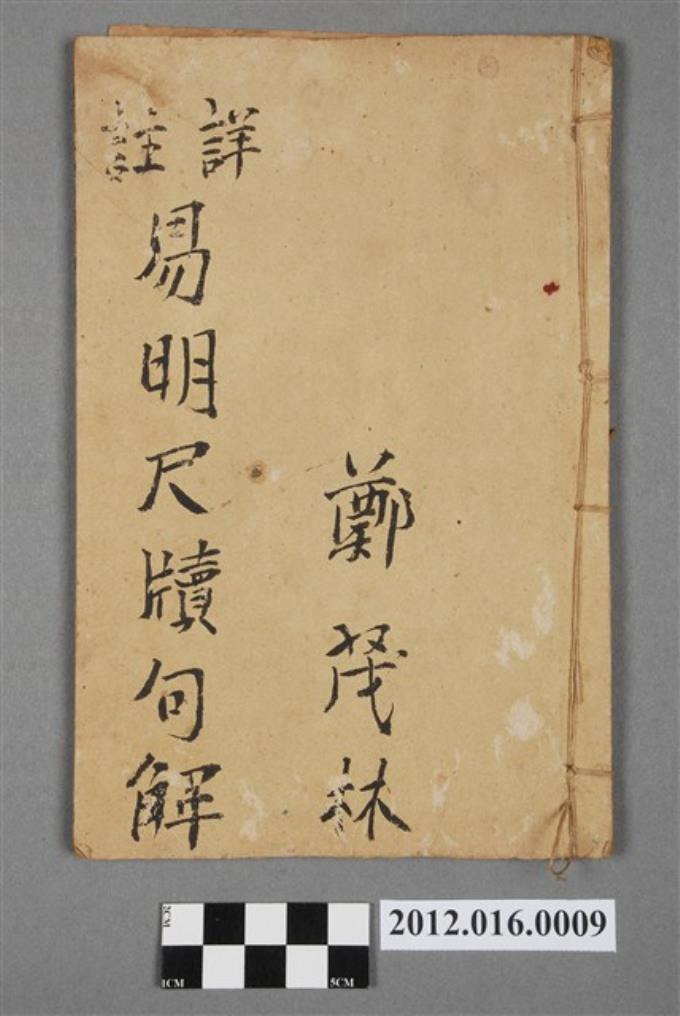 鄭茂林
詳註
易明尺牘句解
2CM
1CM
5CM
2012.016.0009